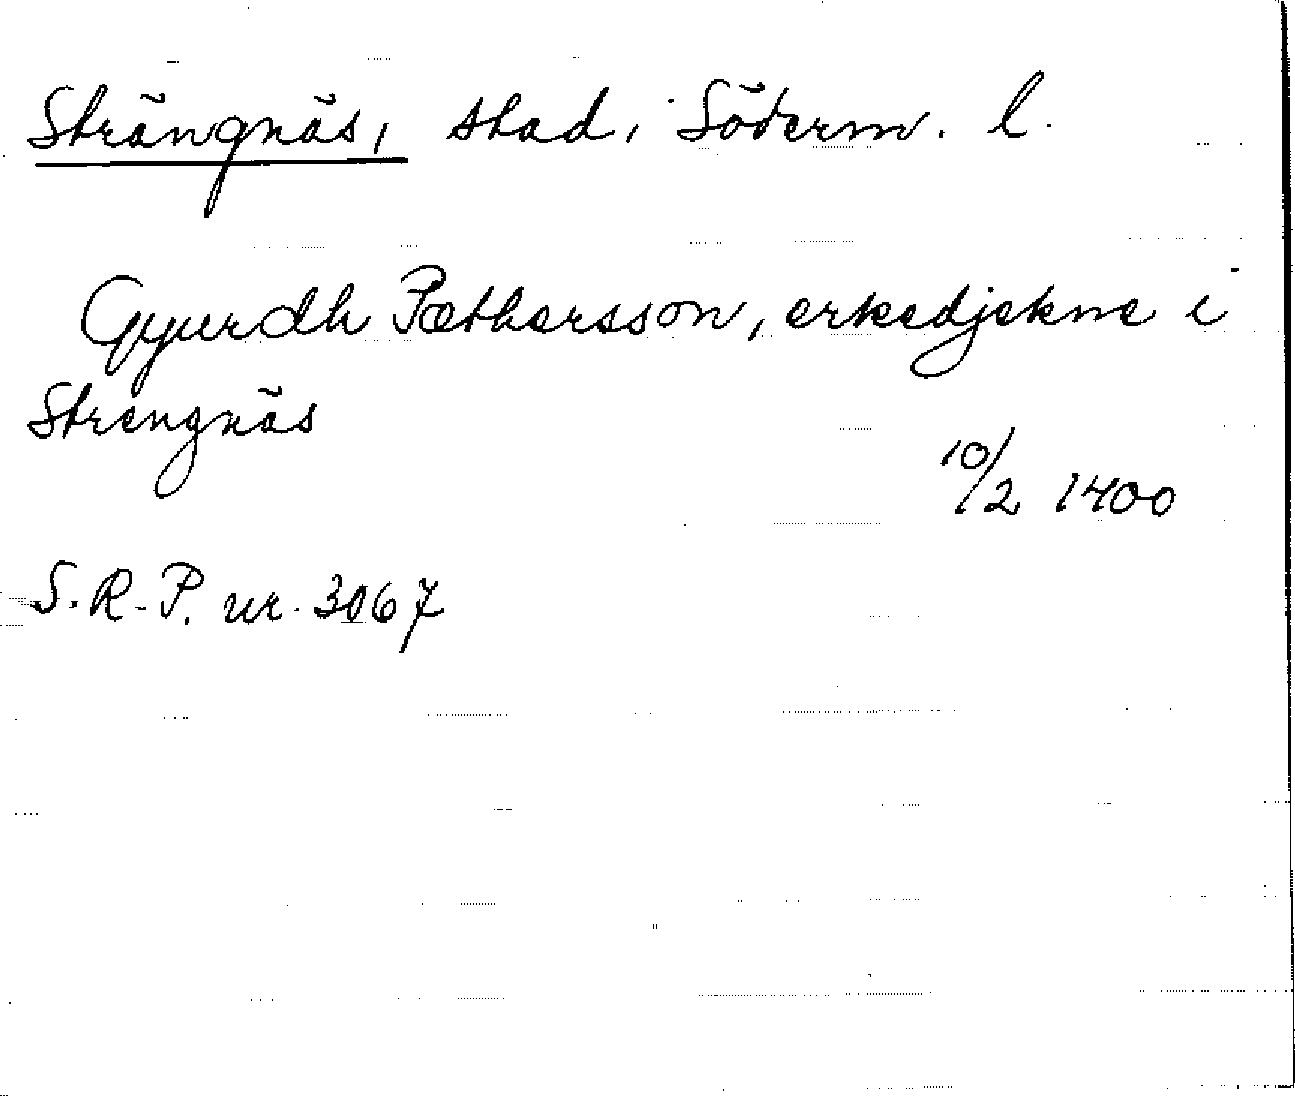 Strängnäs, stad, Söderm. l.
Gyurdh Pæthersson, erkedjekne i
Strengnäs
10/2 1400
S.R.P. nr. 3067